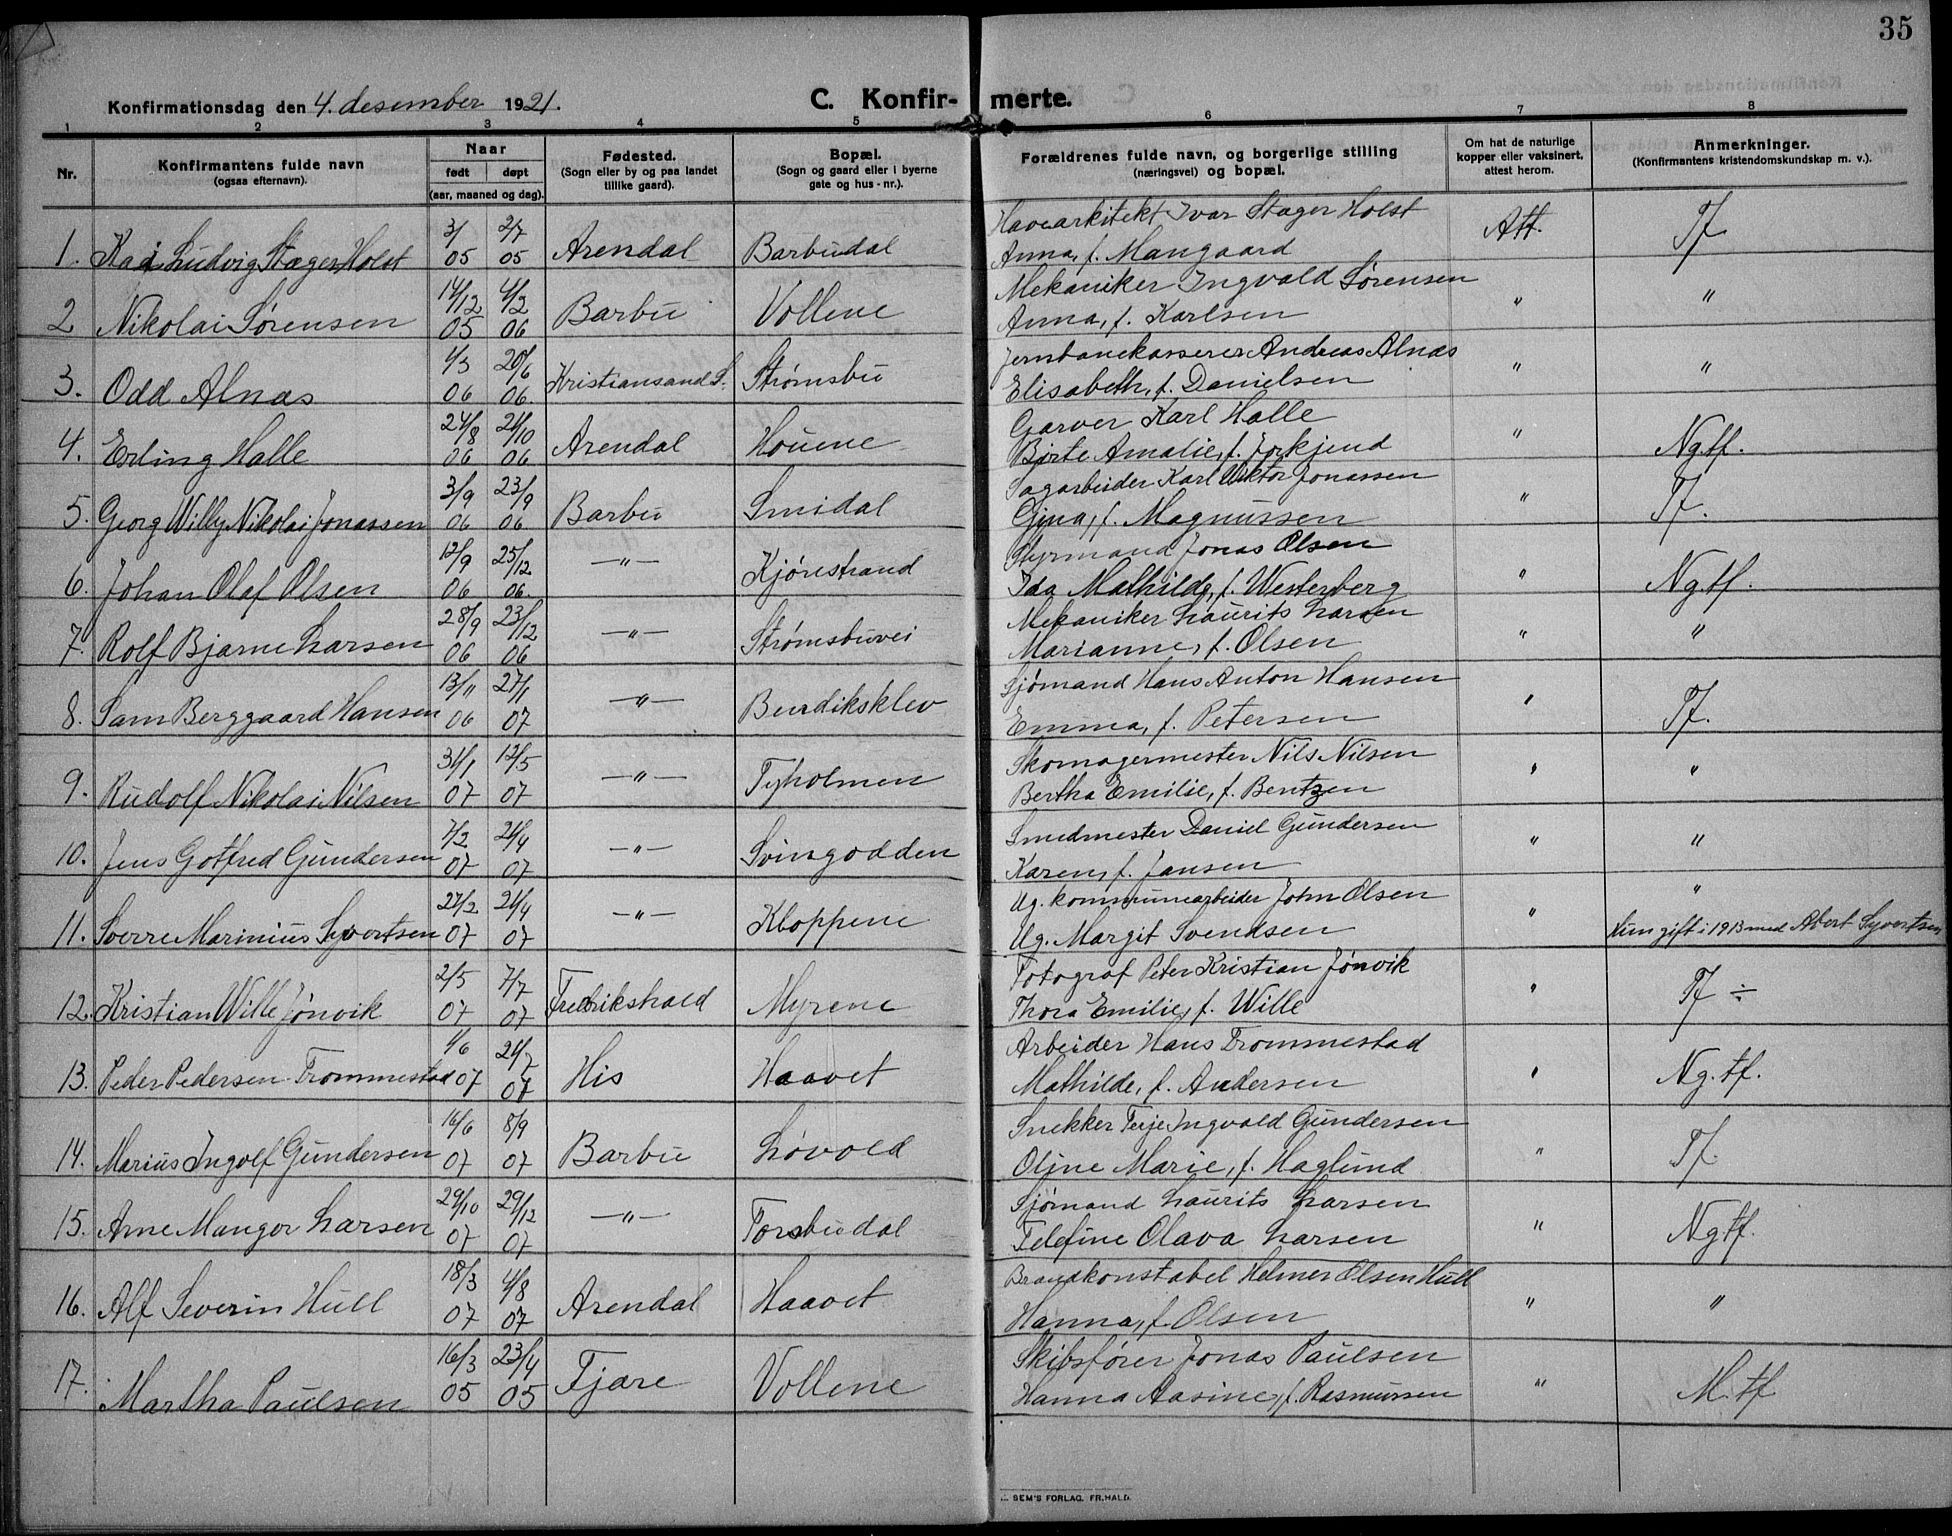 35
Konfirmationsdag den 4. desember 1921.
C. Konfirmerte.
1 2 3 4 5 6 7 8
Nr.
Konfirmantens fulde navn
(ogsaa efternavn).
Naar
født døpt
(aar, maaned og dag).
Fødested.
(Sogn eller by og paa landet
tillike gaard).
Bopæl.
(Sogn og gaard eller i byerne
gate og hus-nr.).
Forældrenes fulde navn, og borgerlige stilling
(næringsvei) og bopæl.
Om hat de naturlige
kopper eller vaksinert,
attest herom.
Anmerkninger.
(Konfirmantens kristendomskundskap m. v.).
1. Kai Ludvig Stager Holst 05 2/7 05 Arendal Barbudal Havearkitekt Ivar Stager Holst Att. Tf
Anna, f. Mangaard
2 Nikolai Sørensen 14/12 05 4/2 06 Barbu Vollene Mekaniker Ingvald Sørensen " "
Anna, f. Karlsen
3. Odd Alnæs 1/3 06 20/6 06. Kristiansand S. Strømsbu Jernbanekasserer Andreas Alnæs " "
Elisabeth, f. Danielsen
4. Erling Halle 24/8 06 21/10 06 Arendal Houene Garver Karl Halle " Ng.tf.
Birte Amalie, f. Jorkjend
5. Georg Willy Nikolai Jonassen 3/9 06 23/9 06 Barbu Smidal Sagarbeider Karl Viktor Jonassen " Tf.
Gina, f. Magnussen
6. Johan Olaf Olsen 12/9 06 25/12 06. —"— Kjørestrand Styrmand Jonas Olsen " Ng.tf.
Ida Mathilde, f. Westerberg
7. Rolf Bjarne Larsen 28/9 06 23/12 06 —"— Strømsbuvei Mekaniker Laurits Larsen " "
Marianne, f. Olsen
8. Sam Berggaard Hansen 13/11 06 27/1 07 —"— Bendiksklev Sjømand Hans Anton Hansen " Tf.
Emma, f. Petersen
9. Rudolf Nikolai Nilsen 31/1 07 12/5 07 —"— Tyholmen Skomagermester Nils Nilsen " "
Bertha Emilie, f. Bentzen
10. Jens Gotfred Gundersen 7/2 07 21/4 07 —"— Svinodden Smedmester Daniel Gundersen " "
Karen, f. Jansen
11. Sverre Marinius Syvertsen 27/2 07 21/4 07 —"— Kloppene Ug. kommunearbeider John Olsen " "
Ug. Margit Svendsen Hun gift i 1913 med Abert Syvertsen
12. Kristian Wille Jønvik 2/5 07 7/7 07 Fredrikshald Myrene Fotograf Peter Kristian Jønvik " Tf ÷
Thora Emilie, f. Wille
13. Peder Pedersen Trommestad 1/6 07 21/7 07 His Haavet Arbeider Hans Trommestad " Ng.tf.
Mathilde, f. Andersen
14. Marius Ingolf Gundersen 16/6 07 8/9 07 Barbu Løvold Snekker Terje Ingvald Gundersen " Tf.
Oline Marie, f. Haglund
15. Arne Mangor Larsen 29/10 07 29/12 07 —"— Torsbudal Sjømand Laurits Larsen " Ng.tf.
Telefine Olava Larsen
16. Alf Severin Hull 18/3 07 4/8 07 Arendal Haavet Brandkonstabel Helmer Olsen Hull " "
Hanna, f. Olsen
17. Martha Paulsen 16/3 05 23/4 05 Fjære Vollene Skibsfører Jonas Paulsen " M.tf
Hanna Aasine, f. Rasmussen
SEM'S FORLAG. FR.HALD.